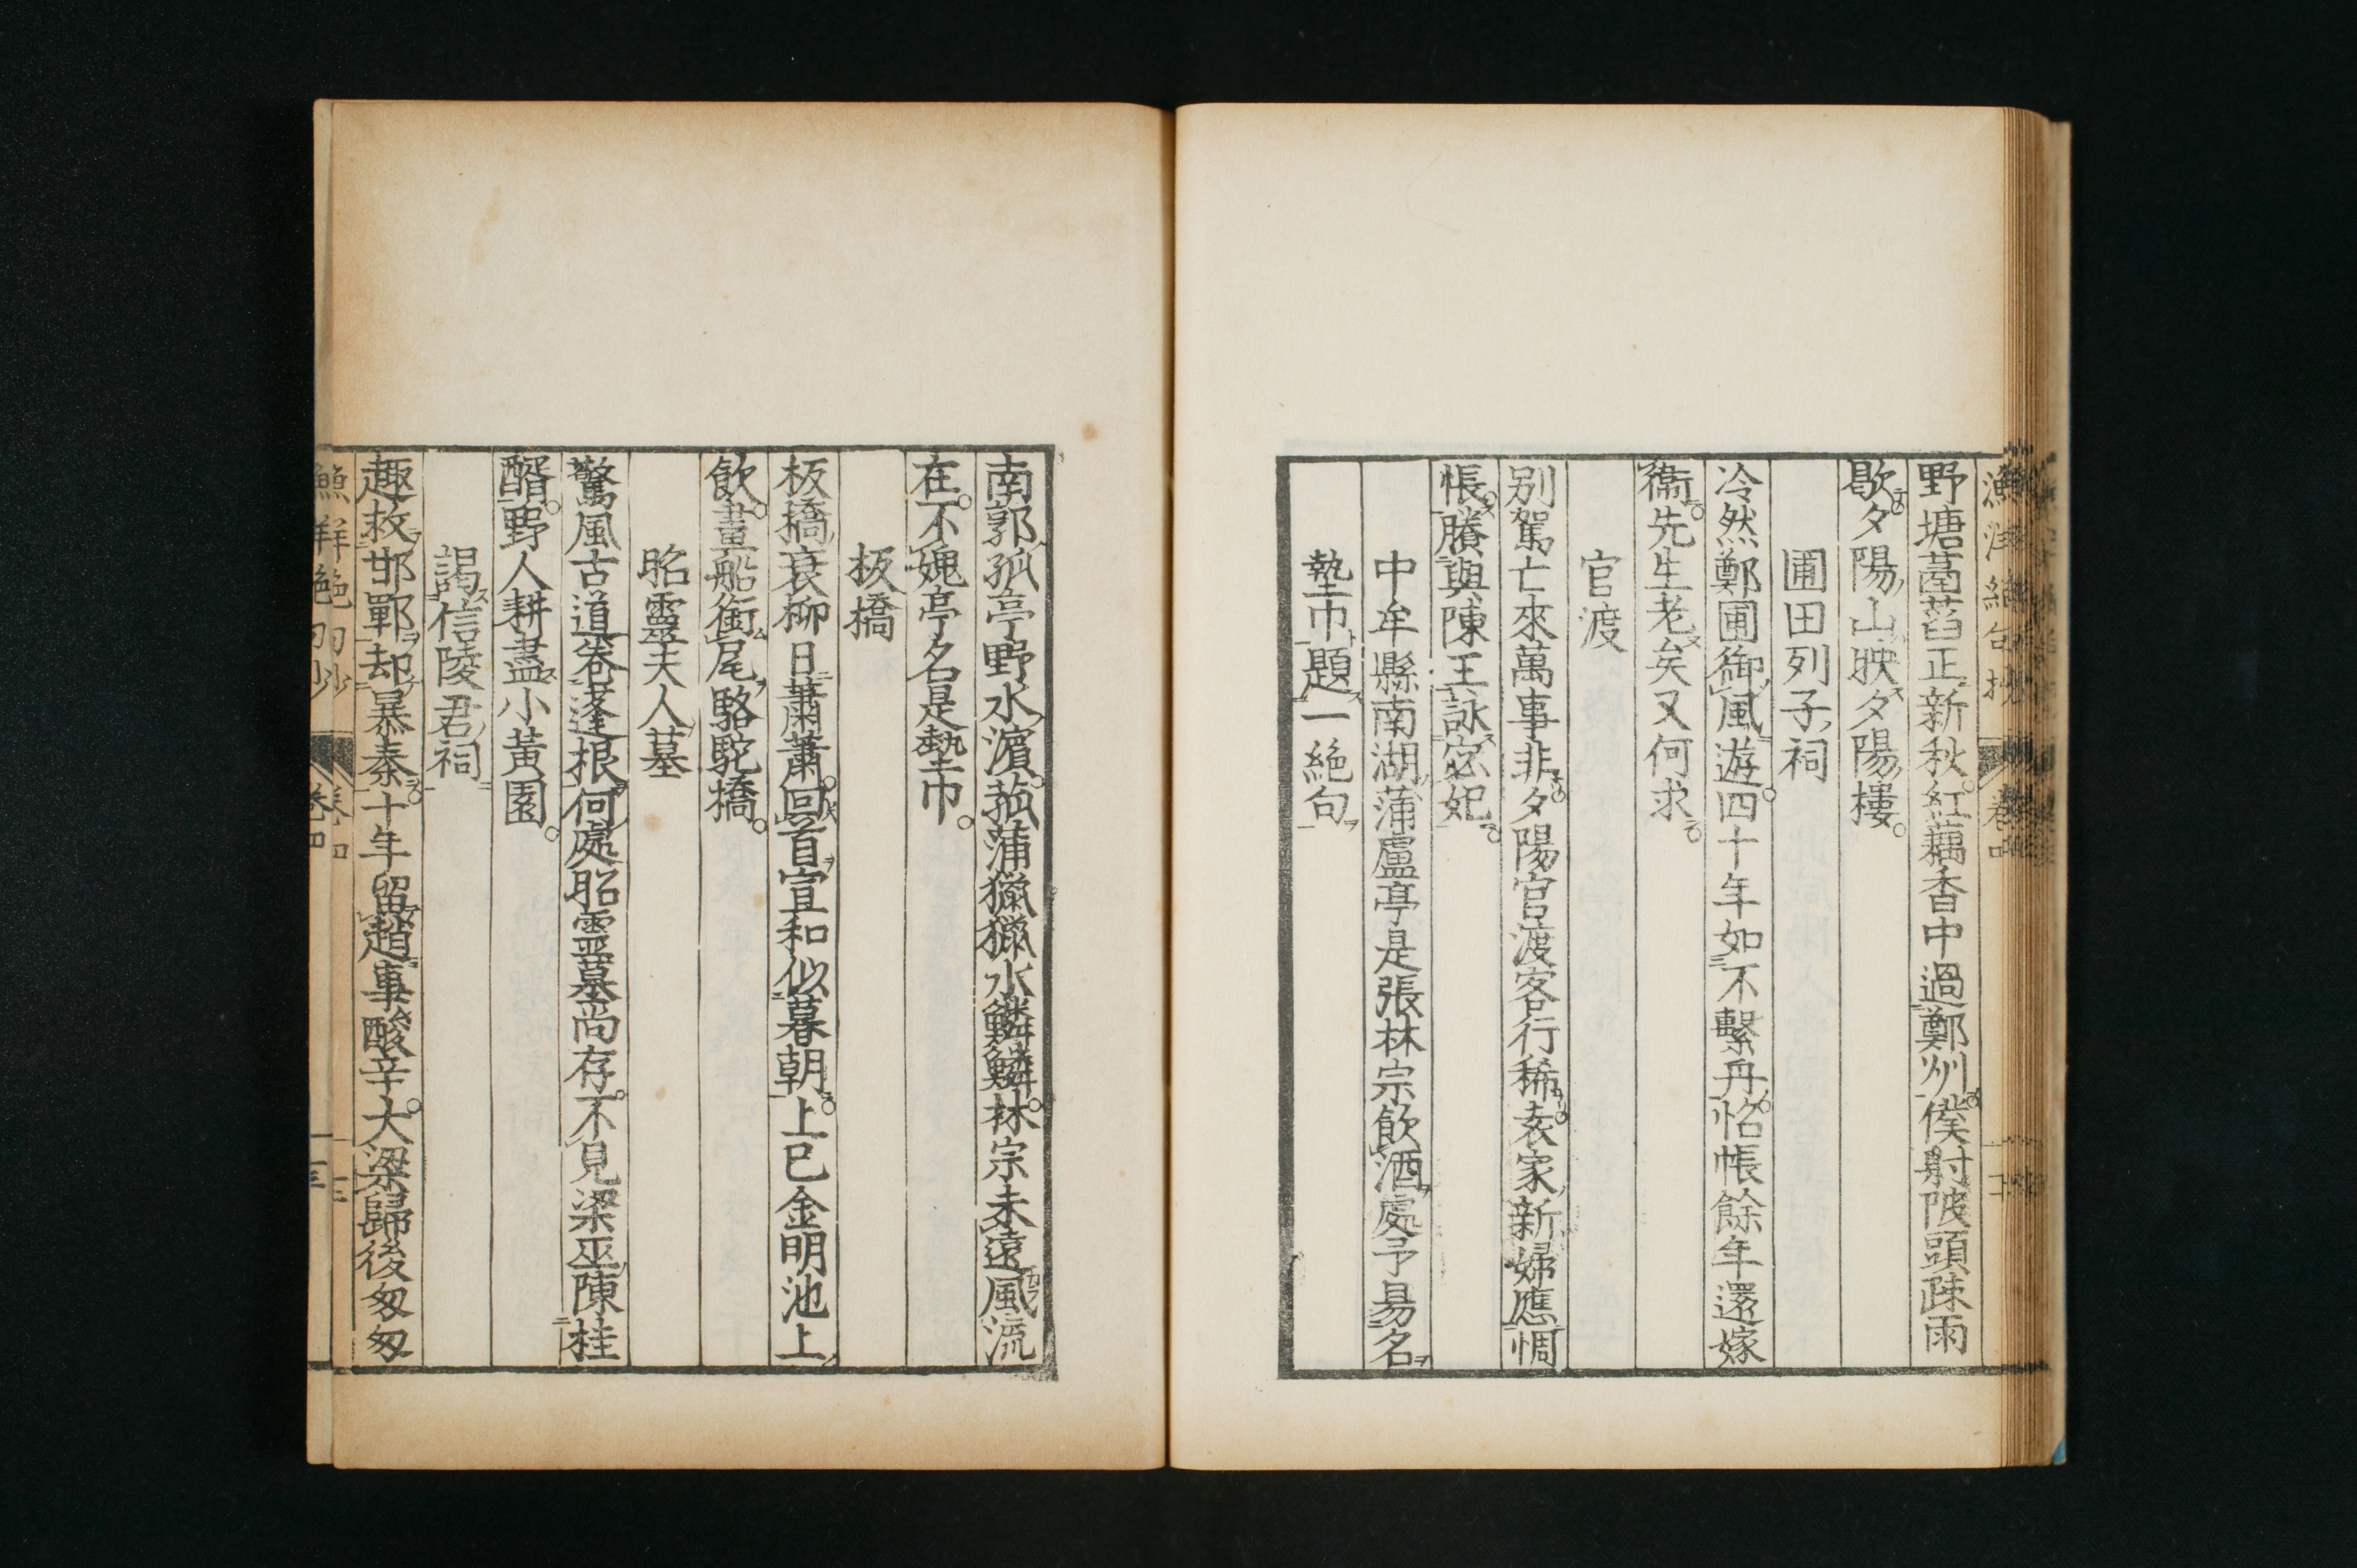 野塘菡萏正新秋紅藕香中過鄭州僕射陂頭疎雨
歇夕陽山映夕陽樓
圃田列子祠
冷然鄭圃御風遊四十年如不繫舟怊悵餘年還嫁
衞先生老矣又何求
官渡
別駕亡來萬事非夕陽官渡客行稀袁家新婦應惆
悵賸與陳王詠宓妃
中牟縣南湖蒲盧亭是張林宗飲酒處予易名
墊巾題一絕句
南郭孤亭野水濵菰蒲獵獵水鱗鱗林宗未遠風流
在不媿亭名是墊巾
板橋
板橋衰柳日蕭蕭回首宣和似暮朝上巳金明池上
飲畫船銜尾駱駝橋
昭靈夫人墓
驚風古道卷蓬根何處昭靈墓尚存不見梁巫陳桂
醑野人耕盡小黃園
謁信陵君祠
趣救邯鄲却暴秦十年留趙事酸辛大梁歸後匆匆